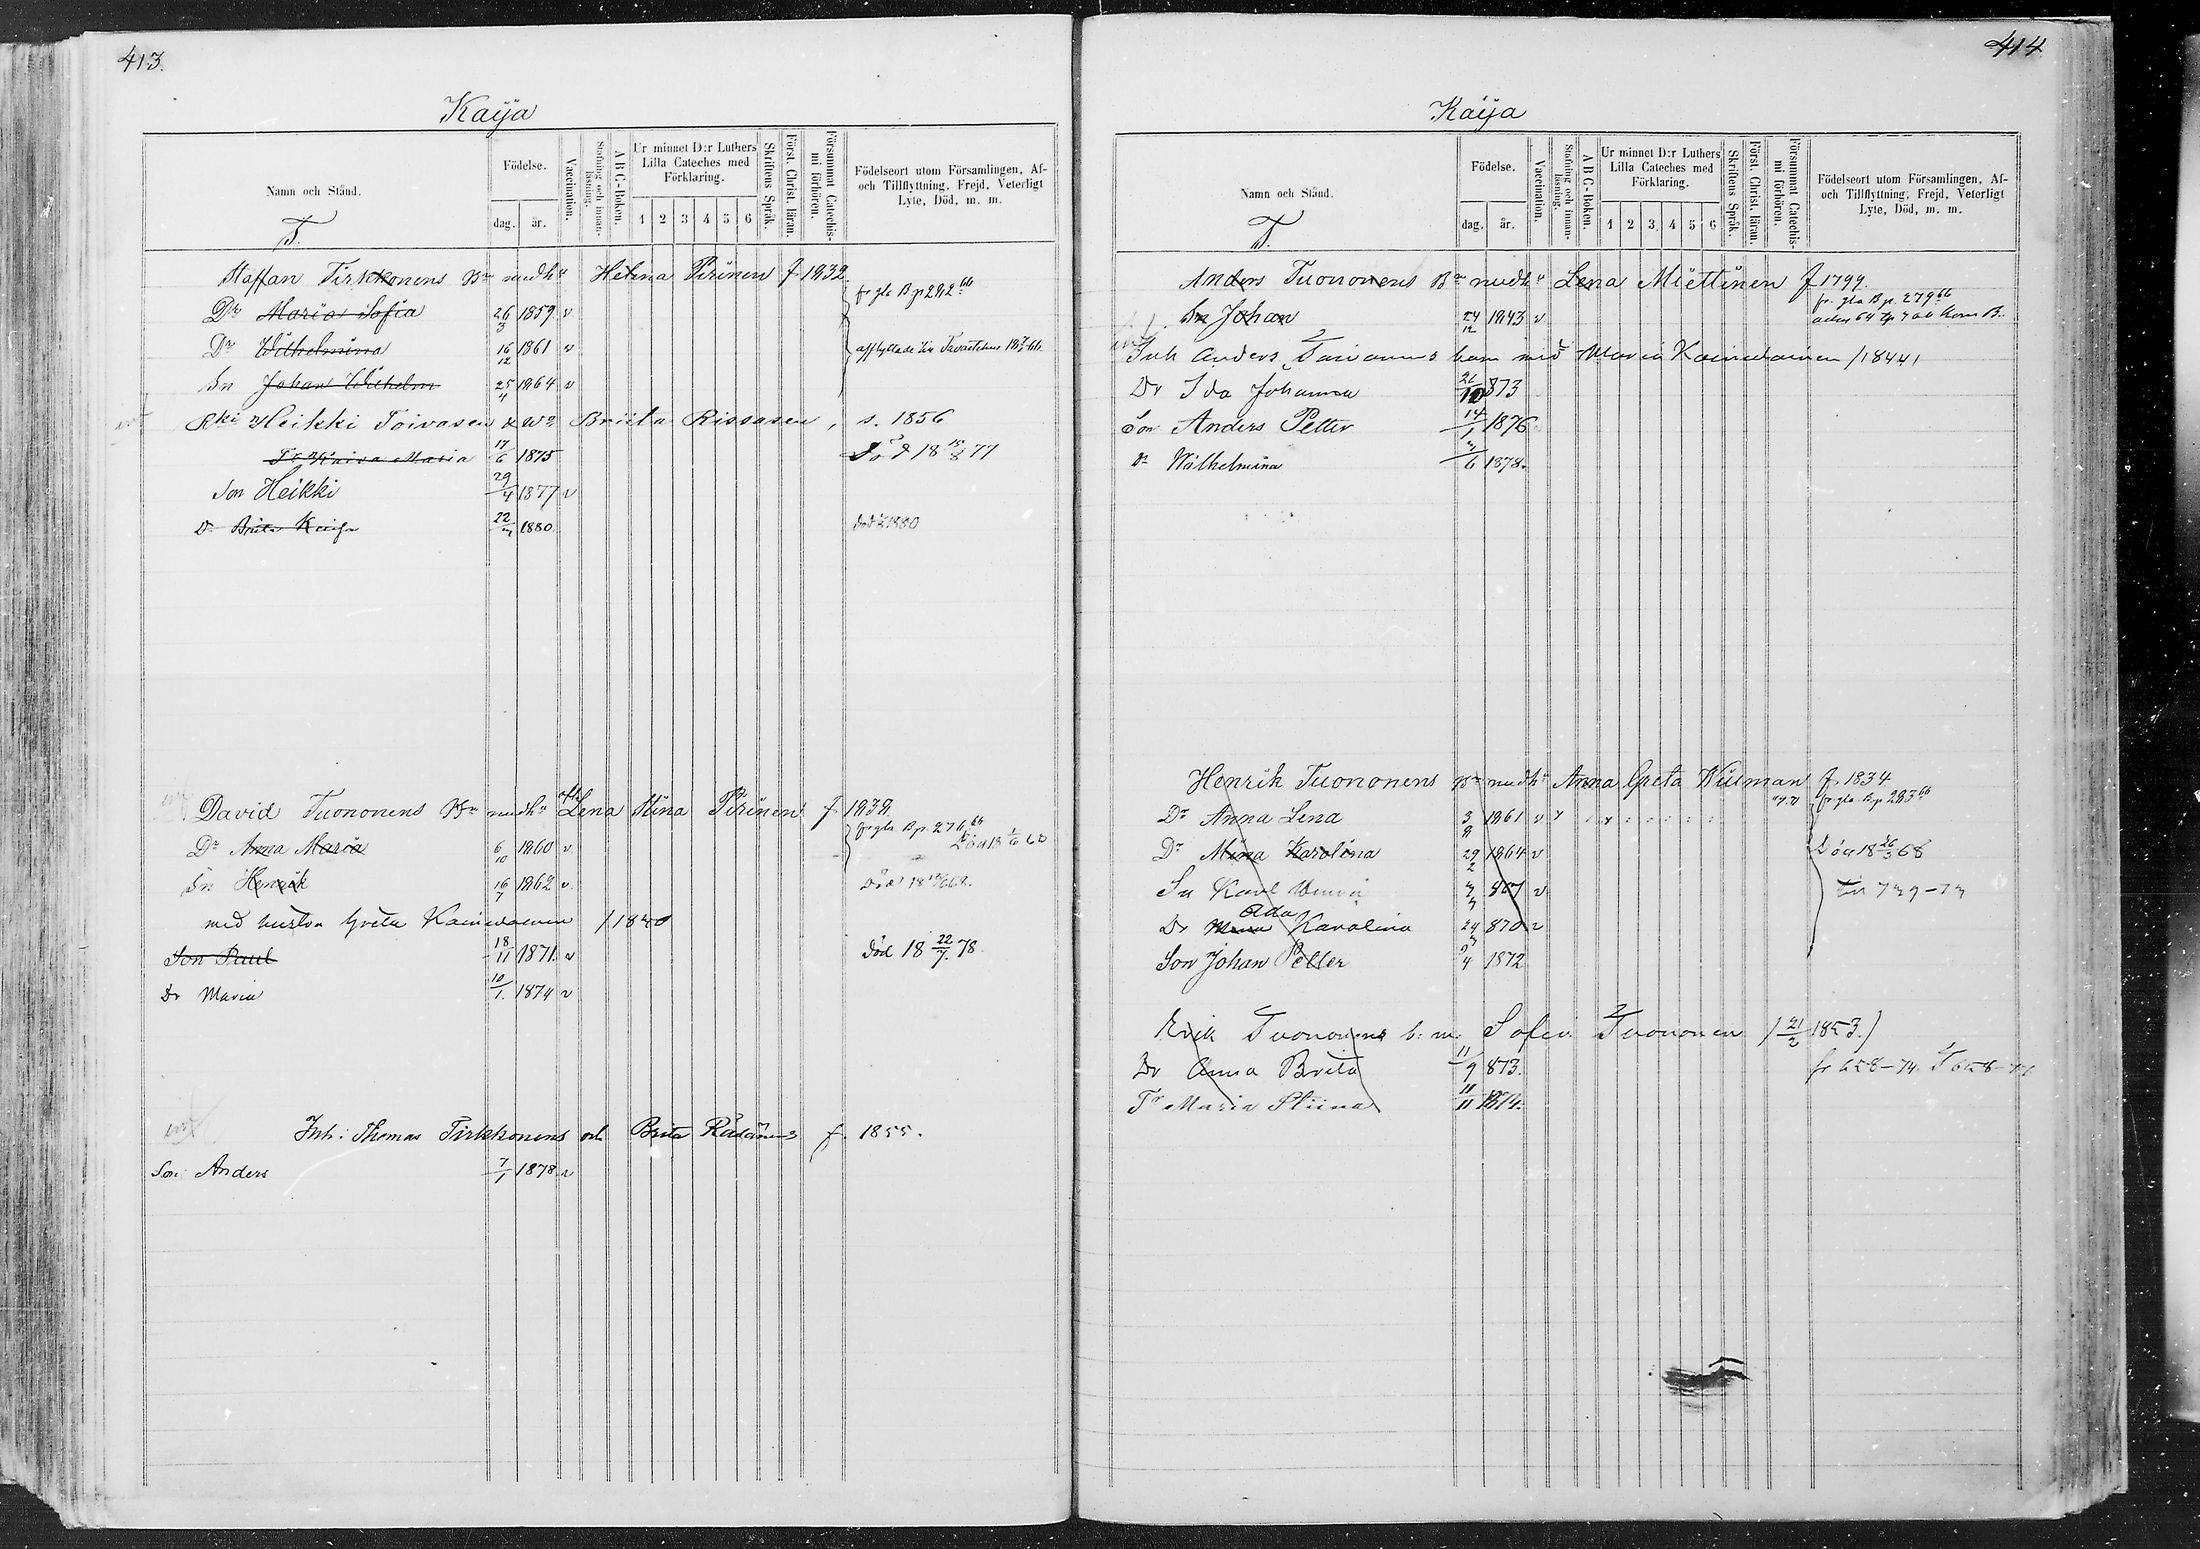 413.
Kaija
Namn och Stånd.
Födelse.
dag.
år.
Vaccination.
Stafning och innanläsning.
A B C-Boken.
Ur minnet D:r Luthers Lilla Cateches med Förklaring.
1 2 3 4 5 6
Skriftens Språk.
Först. Christ. läran.
Försummat Catechismi förhören.
Födelseort utom Församlingen, Af- och Tillflyttning, Frejd, Veterligt Lyte, Död, m. m.
T.
Staffan Tirkkonens Bn medh Helena Pirinen f. 1832.
fr gla B p 282 66
Dr Maria Sofia 26/3 1859 v
Dr Wilhelmina 16/12 1861 v afflyttade till Tavastehus
Sn Johan Wilhelm 25/4 1864 v
Heikki Toivasen Briita Rissasen, s. 1856
Tr Kaisa Maria 17/6 1875 Död 18 15/8 77
Son Heikki 29/4 1877 v
Dr Brita Kaisa 22/ 1880 död 1880
David Tuononens Bn medh Lena Stina Pirinen f 1838
fr gla B p. 276 66
Dr Anna Maria 6/10 1860 v
Sn Henrik 16/7 1862 v.
med hustrun Greta Kainulainen / 1840
Son Paul 18/11 1871. v Död 18 22/7 78.
Dr Maria 10/1. 1874 v
Inh: Thomas Tirkkonens och Brita Räsänens f. 1855.
Son Anders 7/1 1878 v
414
Kaija
Namn och Stånd.
Födelse.
dag.
år.
Vaccination.
Stafning och innanläsning.
A B C-Boken.
Ur minnet D:r Luthers Lilla Cateches med Förklaring.
1 2 3 4 5 6
Skriftens Språk.
Först. Christ. läran.
Försummat Catechismi förhören.
Födelseort utom Församlingen, Af- och Tillflyttning, Frejd, Veterligt Lyte, Död, m. m.
T.
Anders Tuononens Bn medh Lena Miettinen f 1799.
fr. gla B p. 279 66
Sn Johan 24/12 1843 v
Inh Anders barn med Maria Kainulainen /1844/
Dr Ida Johanna 21/10 873
Son Anders Petter 14/1 1876
Dr Wilhelmina /6 1878.
Henrik Tuononens Bn medh Anna Greta Wilman f. 1834
fr gla B p 283 66
Dr Anna Lena 3/8 1861 v
Dr Mina Karolina 29/2 1864 v Död 18 26/3 68
Sn Karl 867 v
Ada
Dr Karolina 24 870 v
Son Johan Petter /4 1872
Erik Tuononens b: m. Sofia Tuononen / 21/2 1853.)
Dr Anna Brita 11/9 873.
Tr Maria Stiina 11/11 1874.